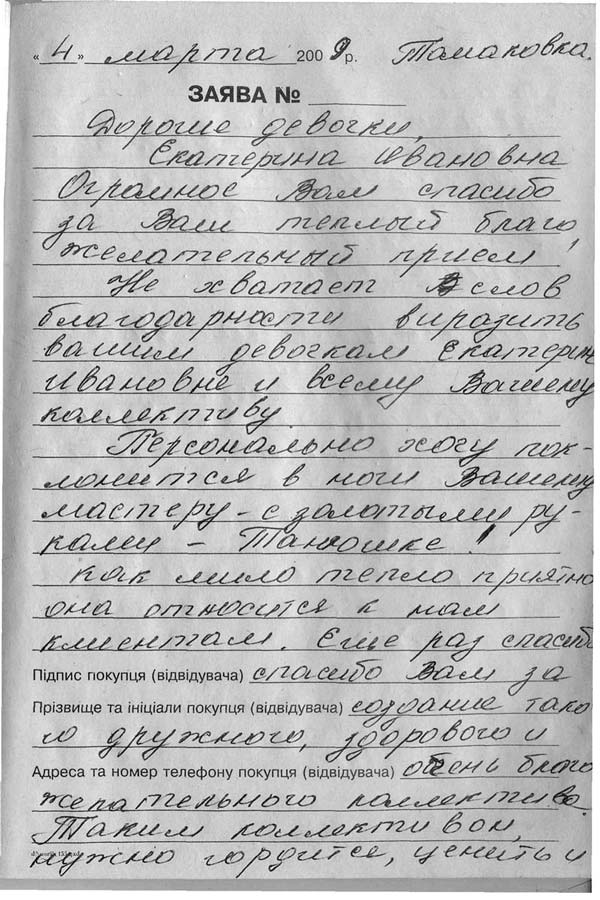 « 4 » марта 2009 р. Томаковка.
ЗАЯВА №
Дорогие девочки,
Екатерина Ивановна
Огромное Вам спасибо
за Ваш теплый благо,
желательный прием
Не хватает слов
благодарности виразить
вашим девочкам Екатерин
Ивановне и всему Вашему
коллективу.
Персонально хочу пок-
лонится в ноги Вашему
мастеру - с золотыми ру-
ками - Танюшке!
Как мило тепло приятно
она относится к нам
клиентам. Еще раз спасибо
Підпис покупця (відвідувача) спасибо Вам за
Прізвище та ініціали покупця (відвідувача) создание тако
го дружного, здорового и
Адреса та номер телефону покупця (відвідувача) очень благо
желательного коллектива.
Таким коллективом,
нужно гордится, ценить и